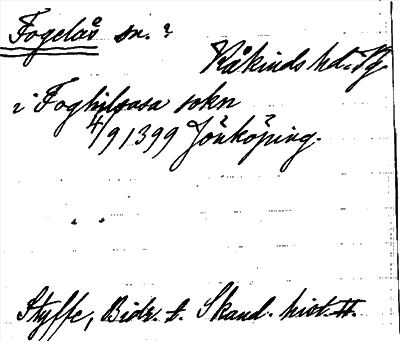 Fogelås sn. ?
Kåkinds hd. Vg
i Foghilsasa sokn
4/9 1399 Jönköping.
Styffe, Bidr. t. Skand. hist. II.